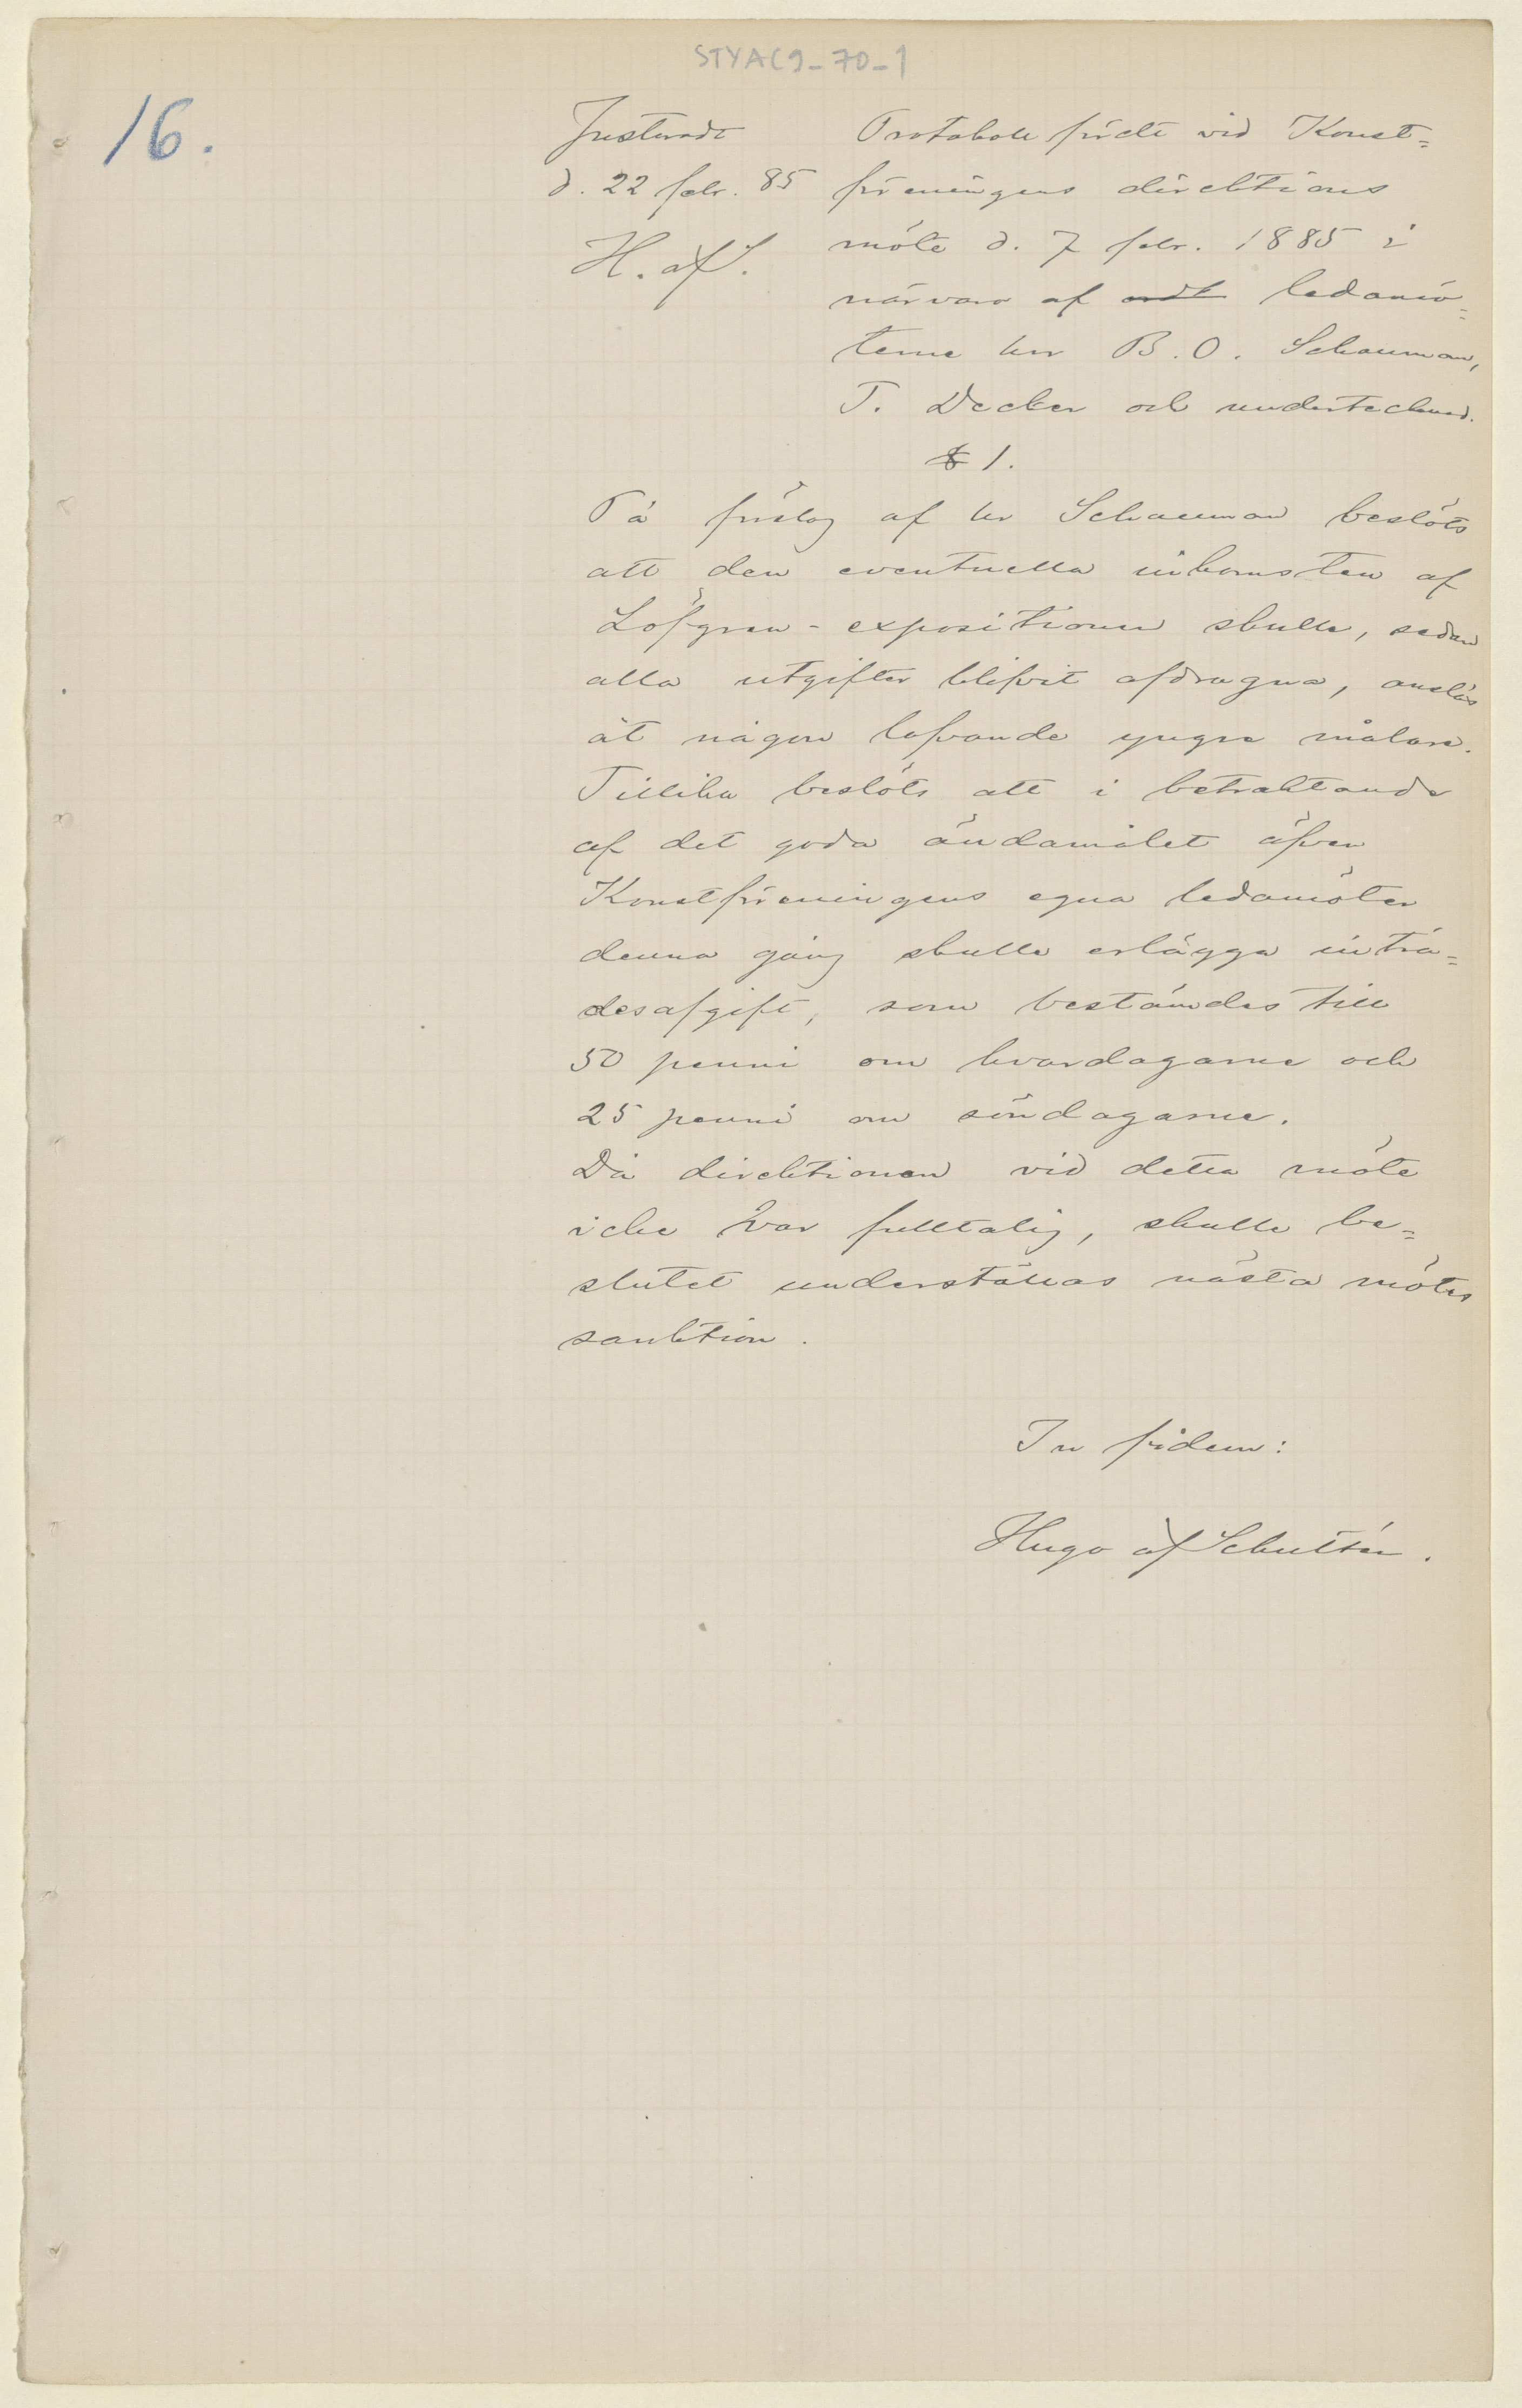 STYAC9-70-1
16.
Justeradt
d. 22 febr. 85
H. af S.
Protokoll fördt vid Konst=
föreningens direktions
möte d. 7 febr. 1885 i
närvaro af ledamö=
terne hrr B. O. Schauman,
T. Decker och undertecknad.
§ 1.
På förslag af hr Schauman beslöts
att den eventuella inkomsten af
Löfgren-expositionen skulle, sedan
alla utgifter blifvit afdragna, anslås
åt någon lofvande yngre målare.
Tillika beslöts att i betraktande
af det goda ändamålet äfven
Konstföreningens egna ledamöter
denna gång skulle erlägga inträ=
desafgift, som bestämdes till
50 penni om hvardagarne och
25 penni om söndagarne.
Då direktionen vid detta möte
icke var fulltalig, skulle be=
slutet underställas nästa mötes
sanktion.
In fidem:
Hugo af Schultén.